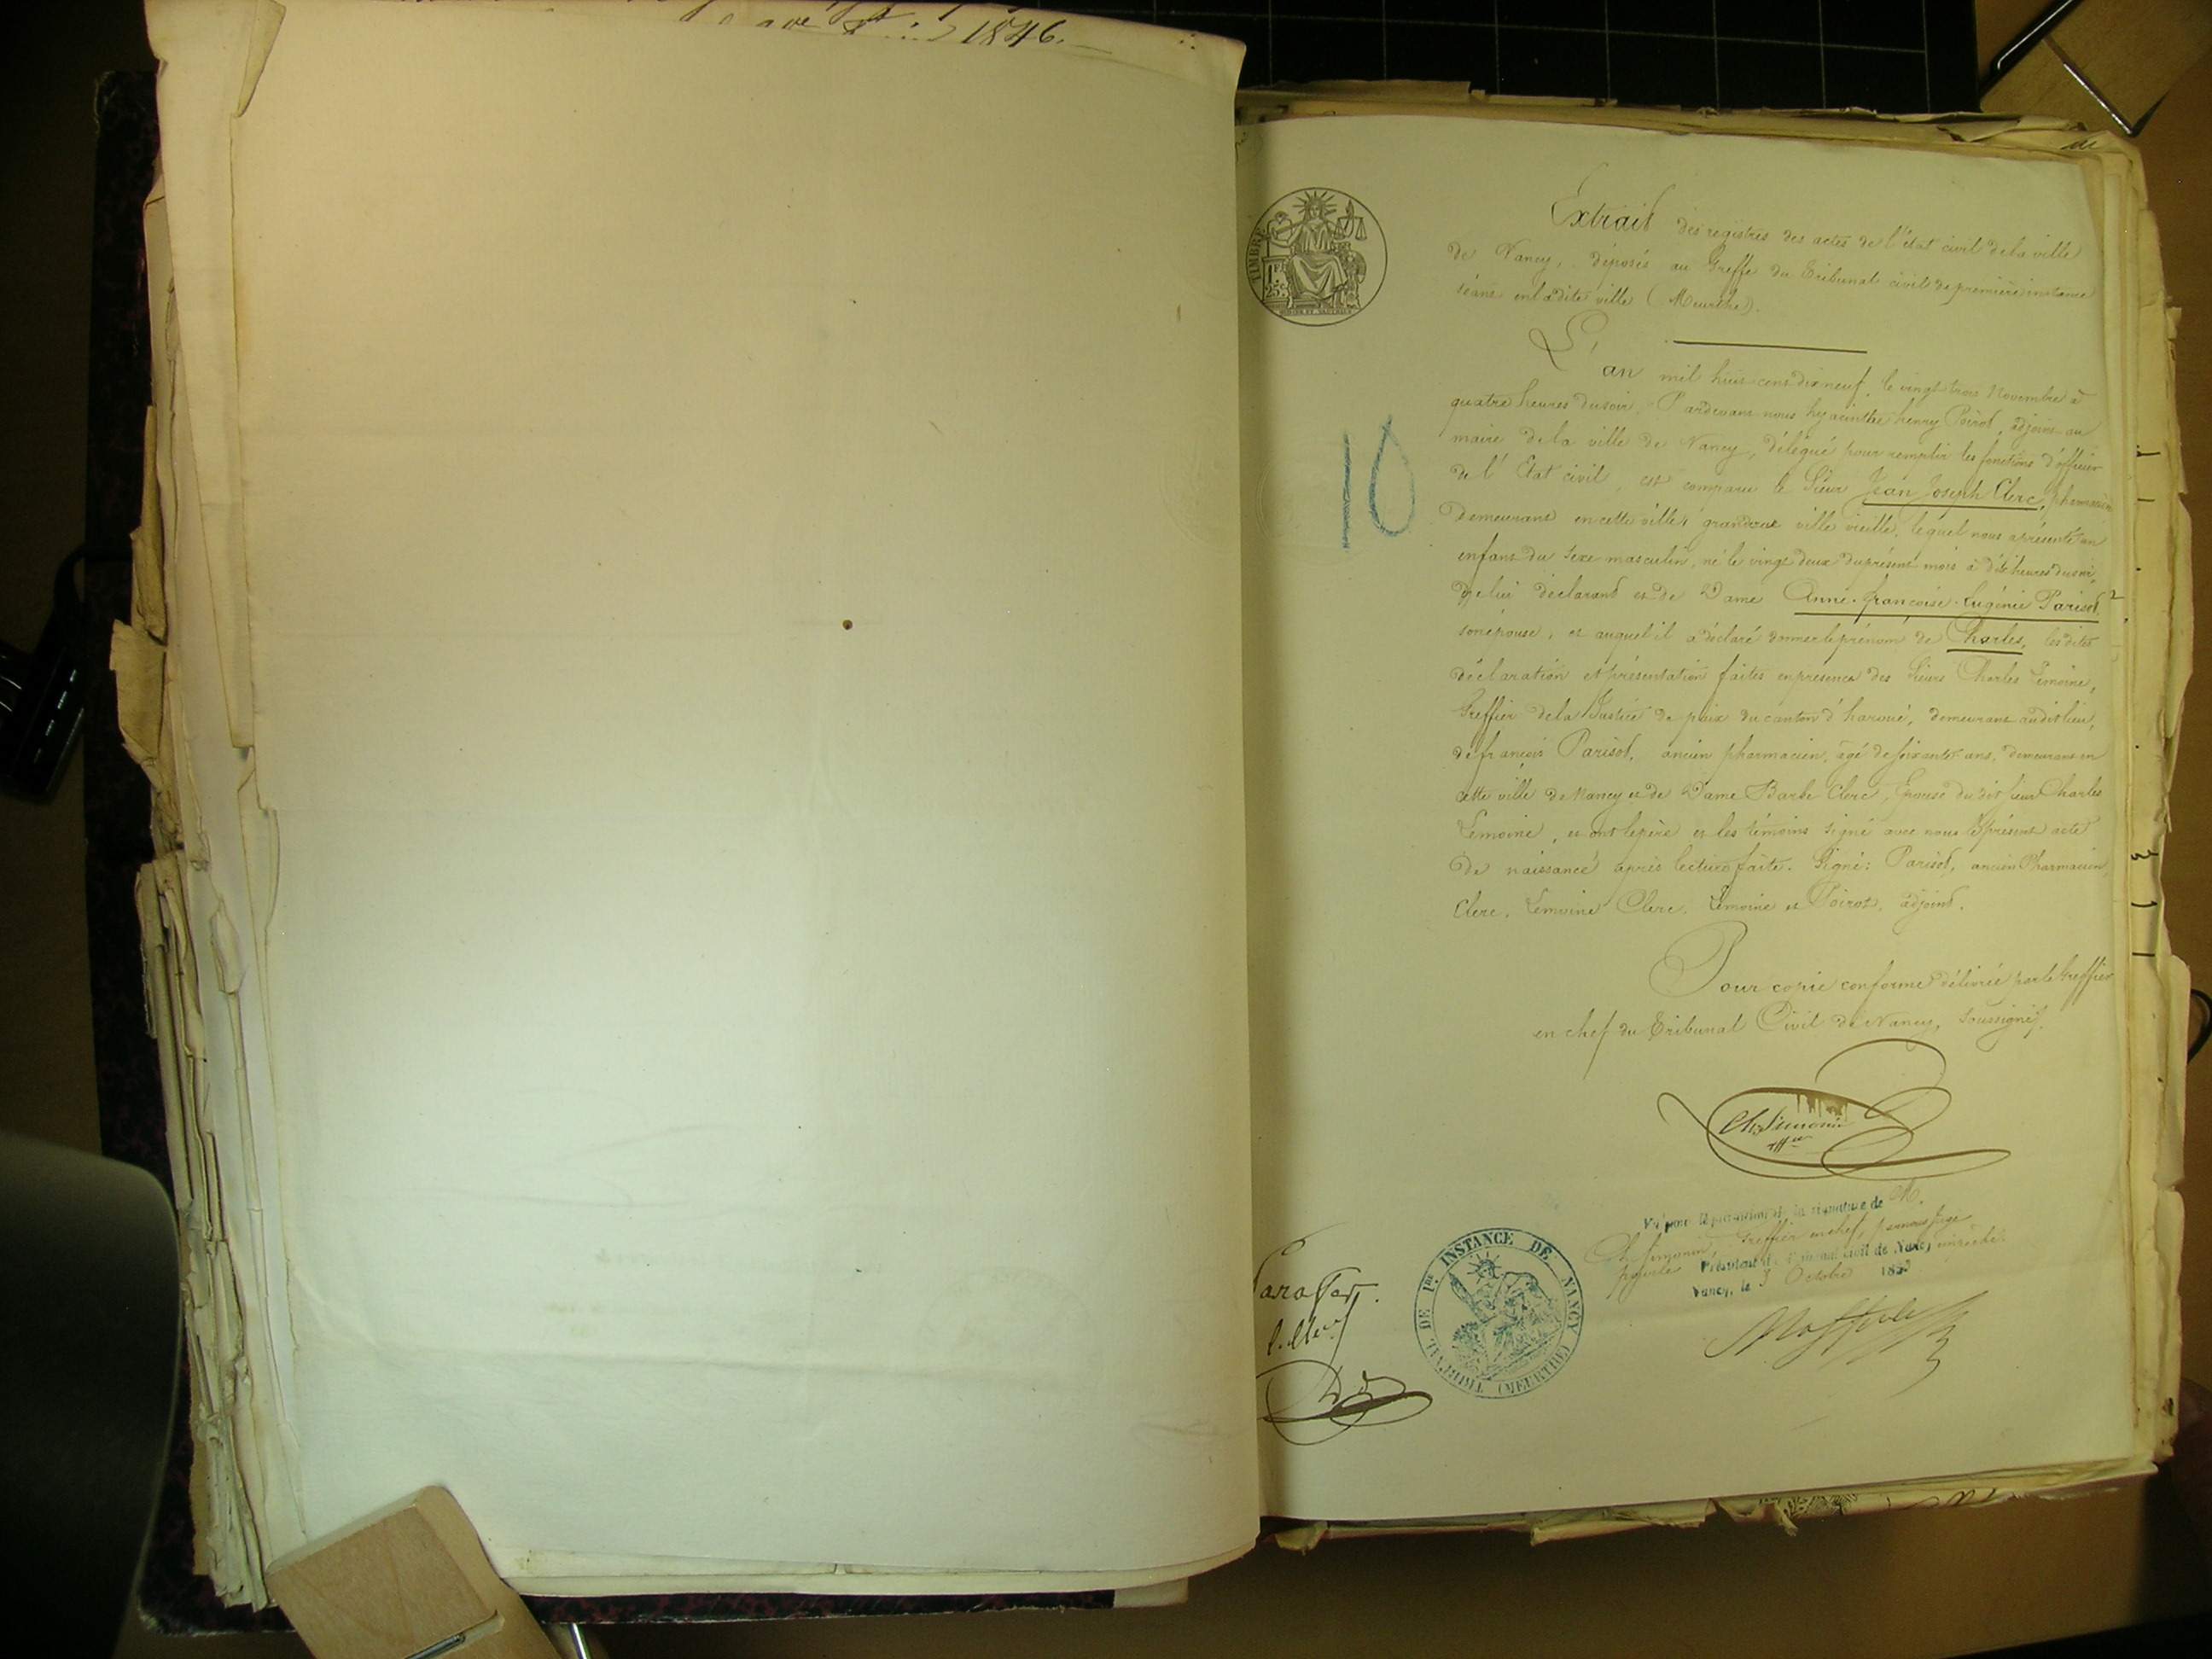 1846.
TIMBRE
1 FR
25 c
Extrait des registres des actes de l'état civil de la ville
de Nancy, déposés au Greffe du Tribunal civil de première instance
séant en ladite ville (Meurthe).
L'an mil huit cent dix neuf, le vingt trois Novembre à
quatre heures du soir, Pardevant nous hyacinthe henry Poirot, adjoint au
maire de la ville de Nancy, délégué pour remplir les fonctions d'officier
de l'Etat civil, est comparu le Sieur Jean Joseph Clerc, pharmacien
demeurant en cette ville, grand rue ville vieille, lequel nous a présenté un
enfant du sexe masculin, né le vingt deux du présent mois à dix heures du soir,
de lui déclarant et de Dame Anne-françoise-Eugénie Parisot
son épouse, et auquel il a déclaré donner le prénom de Charles, les dites
déclaration et présentation faites en présence des Sieurs Charles Lemoine,
Greffier de la Justice de paix du canton d'haroué, demeurant audit lieu,
de françois Parisot, ancien pharmacien, agé de soixante ans, demeurant en
cette ville de Nancy et de Dame Barbe Clerc, Epouse du dit sieur Charles
Lemoine, et ont le père et les témoins signé avec nous le présent acte
de naissance après lecture faite. Signé: Parisot, ancien Pharmacien,
Clerc, Lemoine Clerc, Lemoine et Poirot, adjoint.
10
Pour copie conforme délivrée par le Greffier
en chef du Tribunal Civil de Nancy, soussigné.
Ch. Simonin
Vu pour légalisation de la signature de M.
Ch. Simonin, Greffier en chef, par nous Juge
Président du Tribunal civil de Nancy empêché.
Nancy, le 3 Octobre 185
TRIBUNAL DE 1re INSTANCE DE NANCY (MEURTHE)